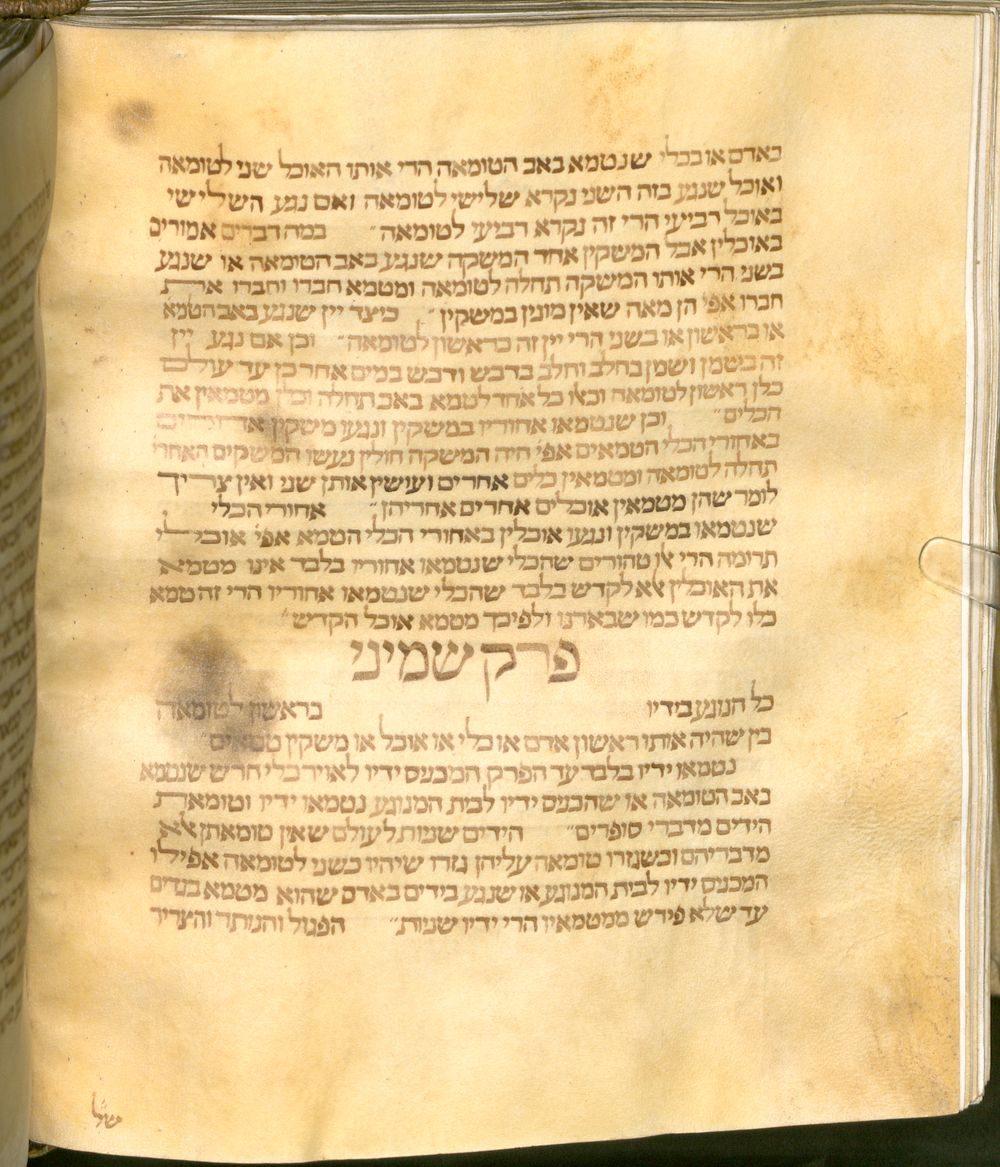 באדם או בכלי שנטמא באב הטומאה הרי אותו האוכל שני לטומאה
ואוכל שנגע בזה השני נקרא שלישי לטומאה ואם נגע השלישי
באוכל רביעי הרי זה נקרא רביעי לטומאה״ במה דברים אמורים
באוכלין אבל המשקין אחד המשקה שנגע באב הטומאה או שנגע
בשני הרי אותו המשקה תחלה לטומאה ומטמא חברו וחברו את
חברו אפי׳ הן מאה שאין מונין במשקין״ כיצד יין שנגע באב הטמא
או בראשון או בשני הרי יין זה כראשון לטומאה״ וכן אם נגע יין
זה בשמן ושמן בחלב וחלב בדבש ודבש במים אחר כן עד עולם
כלן ראשון לטומאה וכאו כל אחד לטמא באב תחלה וכלן מטמאין את
הכלים״ וכן שנטמאו אחוריו במשקין ונגעו משקין
באחורי הכלי הטמאים אפי׳ היה המשקה חולין נעשו המשקים האחרי
תחלה לטומאה ומטמאין כלים אחרים ועושין אותן שני ואין צריך
לומר שהן מטמאין אוכלים אחרים אחריהן״ אחורי הכלי
שנטמאו במשקין ונגעו אוכלין באחורי הכלי הטמא אפי׳ אוכלי
תרומה הרי אלו טהורים שהכלי שנטמאו אחוריו בלבד אינו מטמא
את האוכלין אלא לקדש בלבד שהכלי שנטמאו אחוריו הרי זה טמא
כלו לקדש כמו שבארנו ולפיכך מטמא אוכל הקדש״
פרק שמיני
כל הנוגע בידיו בראשון לטומאה
בין שהיה אותו ראשון אדם או כלי או אוכל או משקין טמאים״
נטמאו ידיו בלבד עד הפרק המכניס ידיו לאויר כלי חרש שנטמא
באב הטומאה או שהכניס ידיו לבית המנוגע נטמאו ידיו וטומאת
הידים מדברי סופרים״ הידים שניות לעולם שאין טומאתן אלא
מדבריהם וכשגזרו טומאה עליהן גזרו שיהיו כשני לטומאה אפילו
המכניס ידיו לבית המנוגע או שנגע בידים באדם שהוא מטמא בגדים
עד שלא פירש ממטמאיו הרי ידיו שניות״ הפגול והנותר והצריר
של